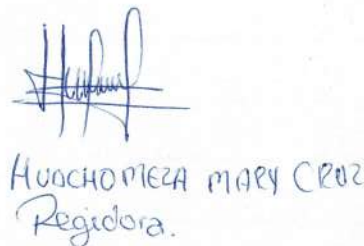 HUACHO MEZA MARY CRUZ
Regidora.